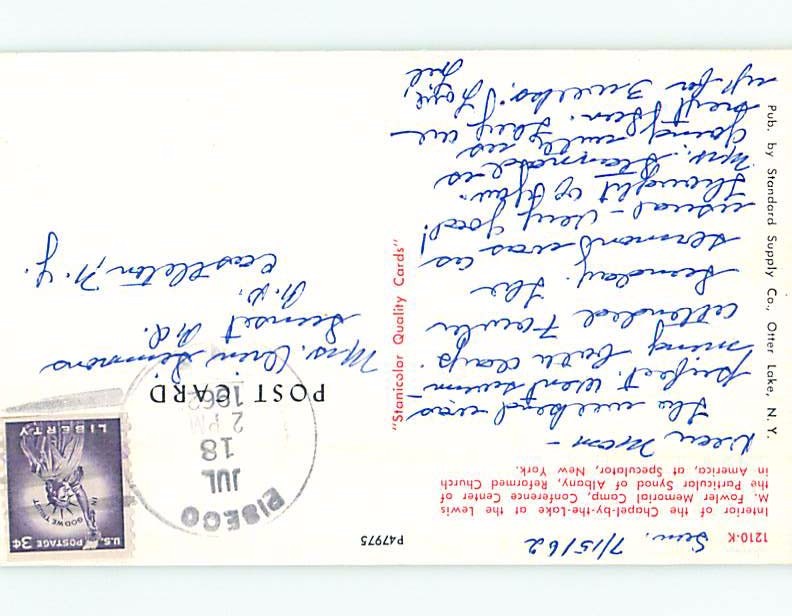 1210-K
Sun. 7/15/62
Interior of the Chapel-by-the-Lake at the Lewis
M. Fowler Memorial Camp, Conference Center of
the Particular Synod of Albany, Reformed Church
in America, at Speculator, New York.
Dear Mom -
The weekend was
perfect. Went swim-
ming both days.
Attended Fowler
Sunday. The
sermon was as
usual - very good!
Thought of you.
Mrs. Stannard is
going
next
up for 3 weeks.
Love,
P47975
"Stanicolor Quality Cards"
Pub. by Standard Supply Co., Otter Lake, N. Y.
U.S. POSTAGE 3¢
IN GOD WE TRUST
LIBERTY
PISECO
JUL
18
2 PM
1962
POST CARD
Mrs. Orin Simmons
Sunset Rd.
R.D.
Castleton, N.Y.